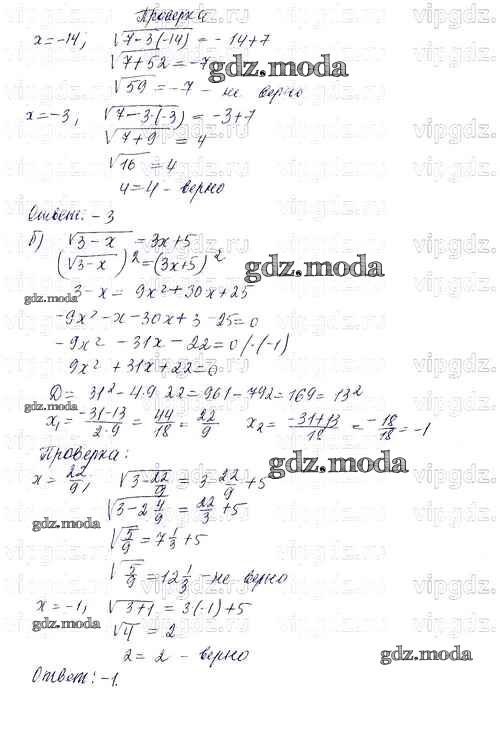 Проверка
x=-14; √7-3(-14) = -14+7
√7+52 = -7
√59 = -7 - не верно
x=-3, √7-3·(-3) = -3+7
√7+9 = 4
√16 = 4
4=4 - верно
Ответ: -3
б) √3-x = 3x+5
(√3-x)² = (3x+5)²
3-x = 9x²+30x+25
-9x²-x-30x+3-25=0
-9x²-31x-22=0 /·(-1)
9x²+31x+22=0
D = 31²-4·9·22=961-792=169=13²
x₁ = -31-13/2·9 = 44/18 = 22/9 x₂ = -31+13/18 = -18/18 = -1
Проверка:
x = 22/9, √3-22/9 = 3·22/9+5
√3-2 4/9 = 22/3+5
√5/9 = 7 1/3+5
√5/9 = 12 1/3 - не верно
x=-1, √3+1 = 3(-1)+5
√4 = 2
2=2 - верно
Ответ: -1.
gdz.moda
gdz.moda
gdz.moda
gdz.moda
gdz.moda
gdz.moda
gdz.moda
gdz.moda
vipgdz.ru